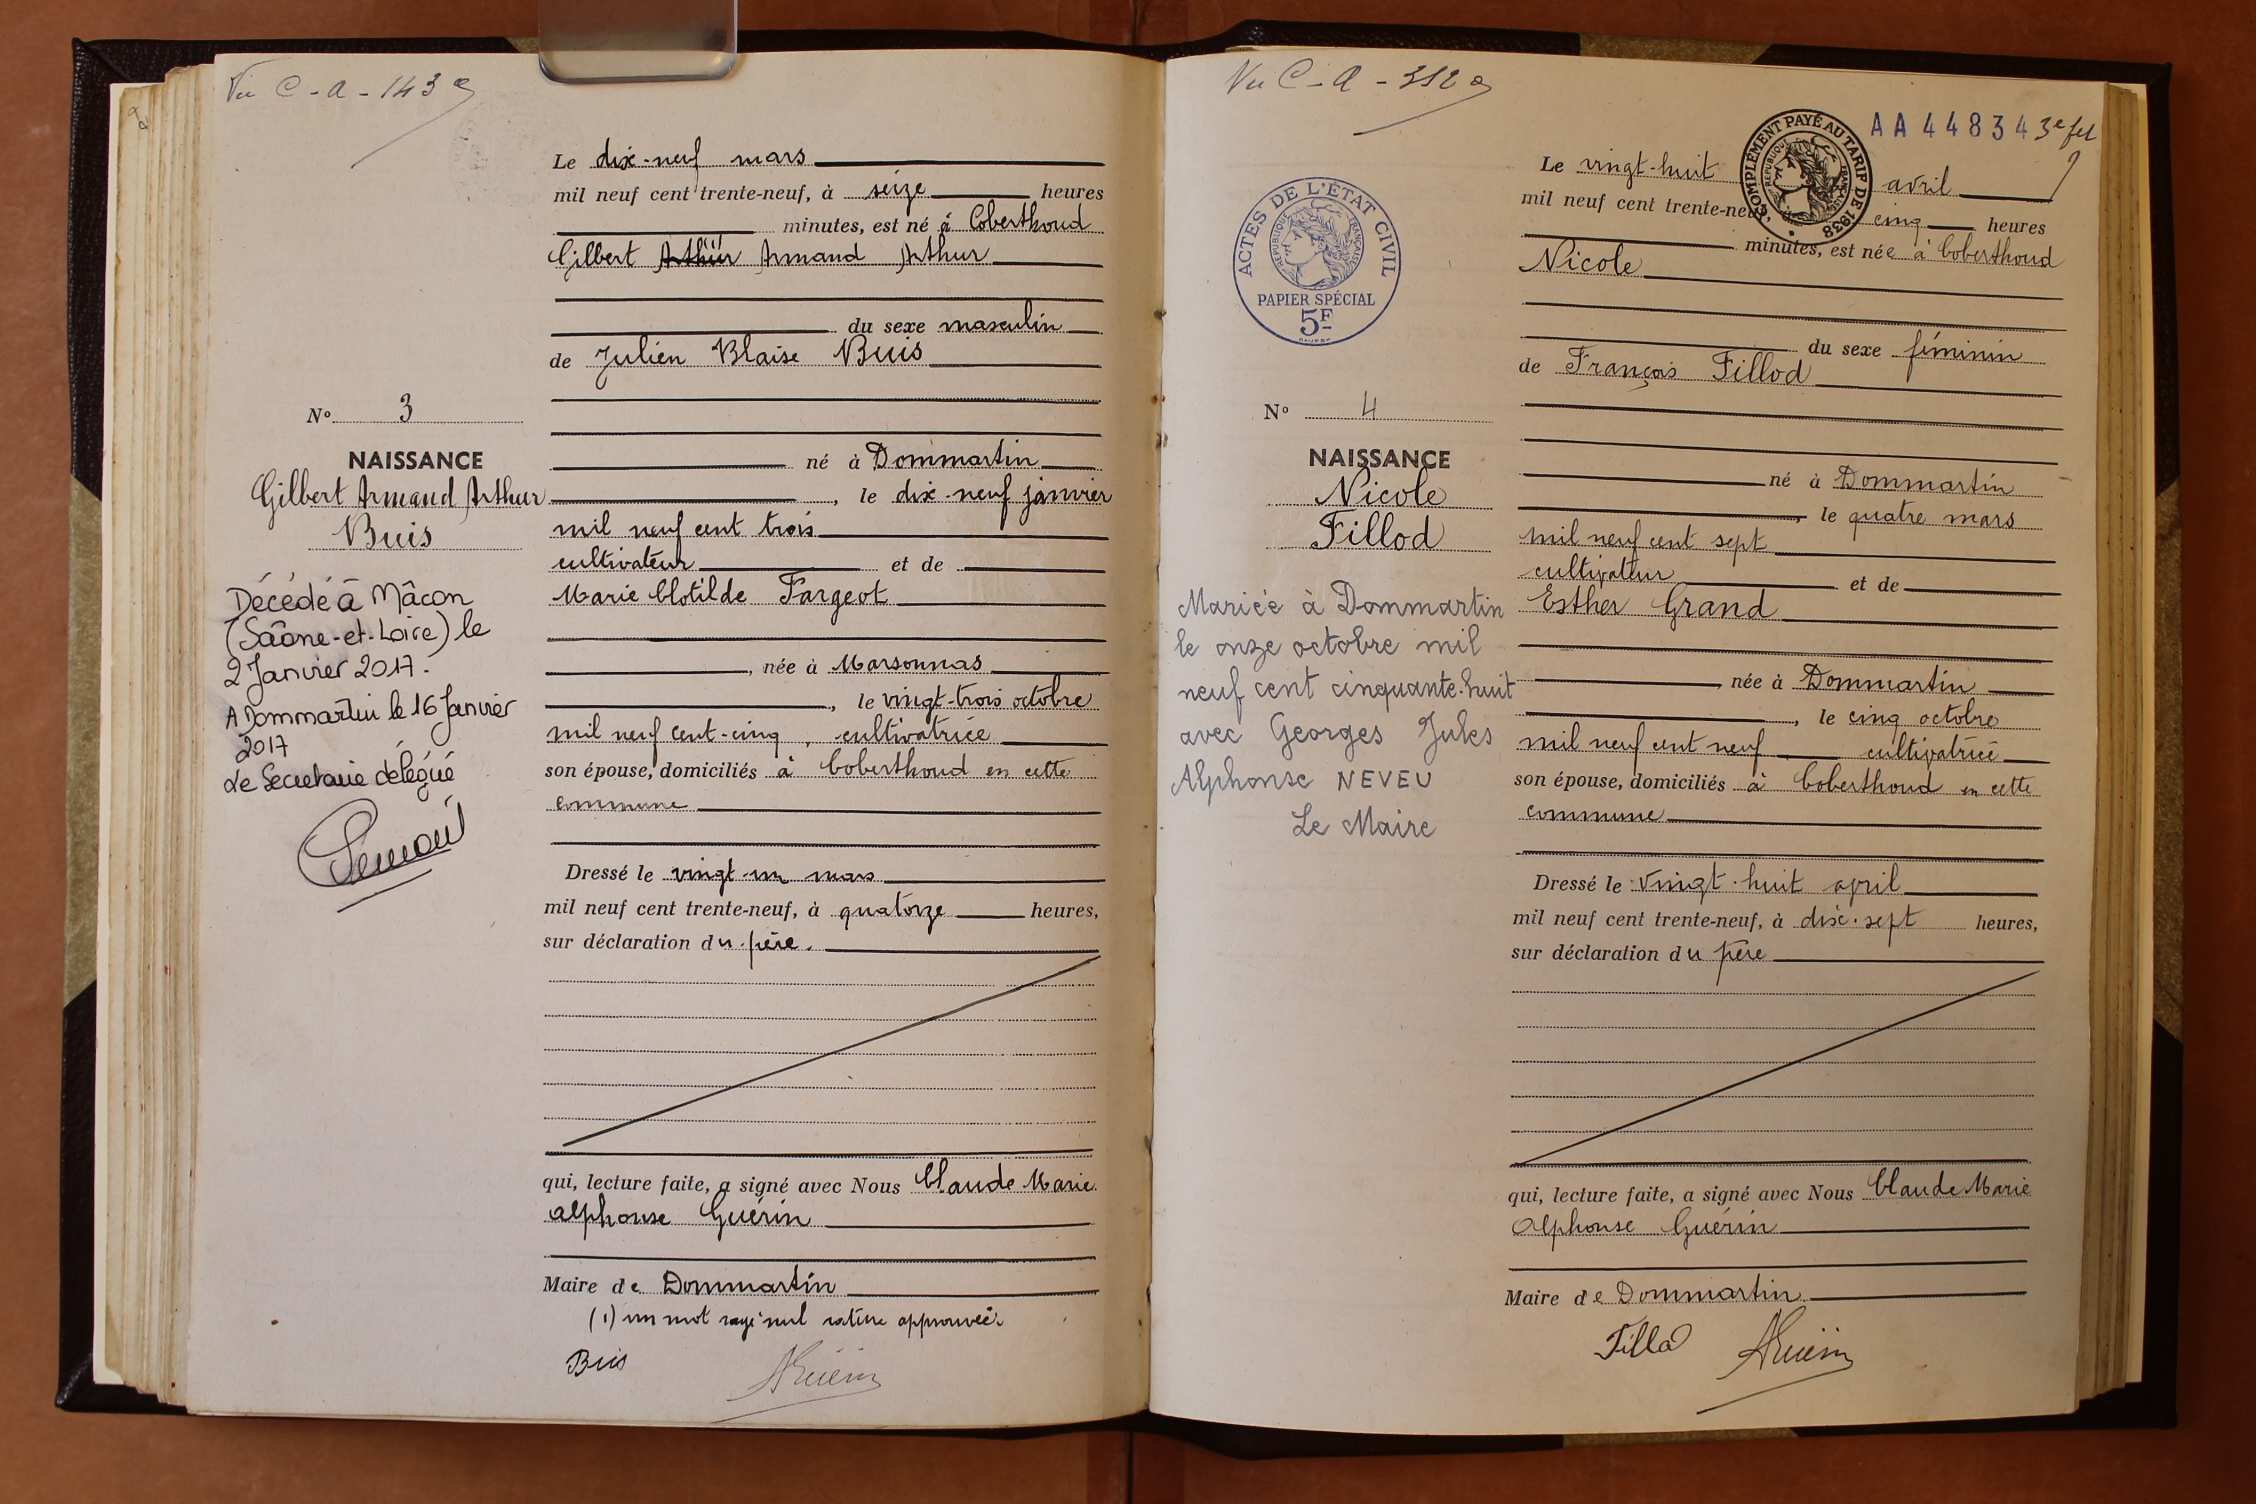 Vu C - a - 143
Le dix-neuf mars
mil neuf cent trente-neuf, à seize heures
minutes, est né à Coberthoud
Gilbert Arthur Armand Arthur
du sexe masculin
de Julien Blaise Buis
N° 3
né à Dommartin
NAISSANCE
Gilbert Armand Arthur
Buis
, le dix-neuf janvier
mil neuf cent trois
cultivateur et de
Marie Clotilde Fargeot
Décédé à Mâcon
(Saône-et-Loire) le
2 Janvier 2017.
A Dommartin le 16 Janvier
2017
Le Secretaire délégué
, née à Marsonnas
, le vingt-trois octobre
mil neuf cent-cinq, cultivatrice
son épouse, domiciliés à Coberthoud en cette
commune
Dressé le vingt-un mars
mil neuf cent trente-neuf, à quatorze heures,
sur déclaration du père.
qui, lecture faite, a signé avec Nous Claude Marie
Alphonse Guérin
Maire de Dommartin
(1) un mot rayé nul rature approuvée
Buis
AGuérin
Vu C - a - 312
AA 44834 3e
COMPLÉMENT PAYÉ AU TARIF DE 1938
RÉPUBLIQUE FRANÇAISE
ACTES DE L'ÉTAT CIVIL
RÉPUBLIQUE FRANÇAISE
PAPIER SPÉCIAL
5F
Le vingt-huit avril
mil neuf cent trente-neuf, cinq heures
minutes, est née à Coberthoud
Nicole
du sexe féminin
de François Fillod
N° 4
NAISSANCE
Nicole
Fillod
né à Dommartin
, le quatre mars
mil neuf cent sept
cultivateur et de
Esther Grand
Mariée à Dommartin
le onze octobre mil
neuf cent cinquante-huit
avec Georges Jules
Alphonse NEVEU
Le Maire
née à Dommartin
, le cinq octobre
mil neuf cent neuf cultivatrice
son épouse, domiciliés à Coberthoud en cette
commune
Dressé le vingt-huit april
mil neuf cent trente-neuf, à dix-sept heures,
sur déclaration du père
qui, lecture faite, a signé avec Nous Claude Marie
Alphonse Guérin
Maire de Dommartin
Fillod
AGuérin